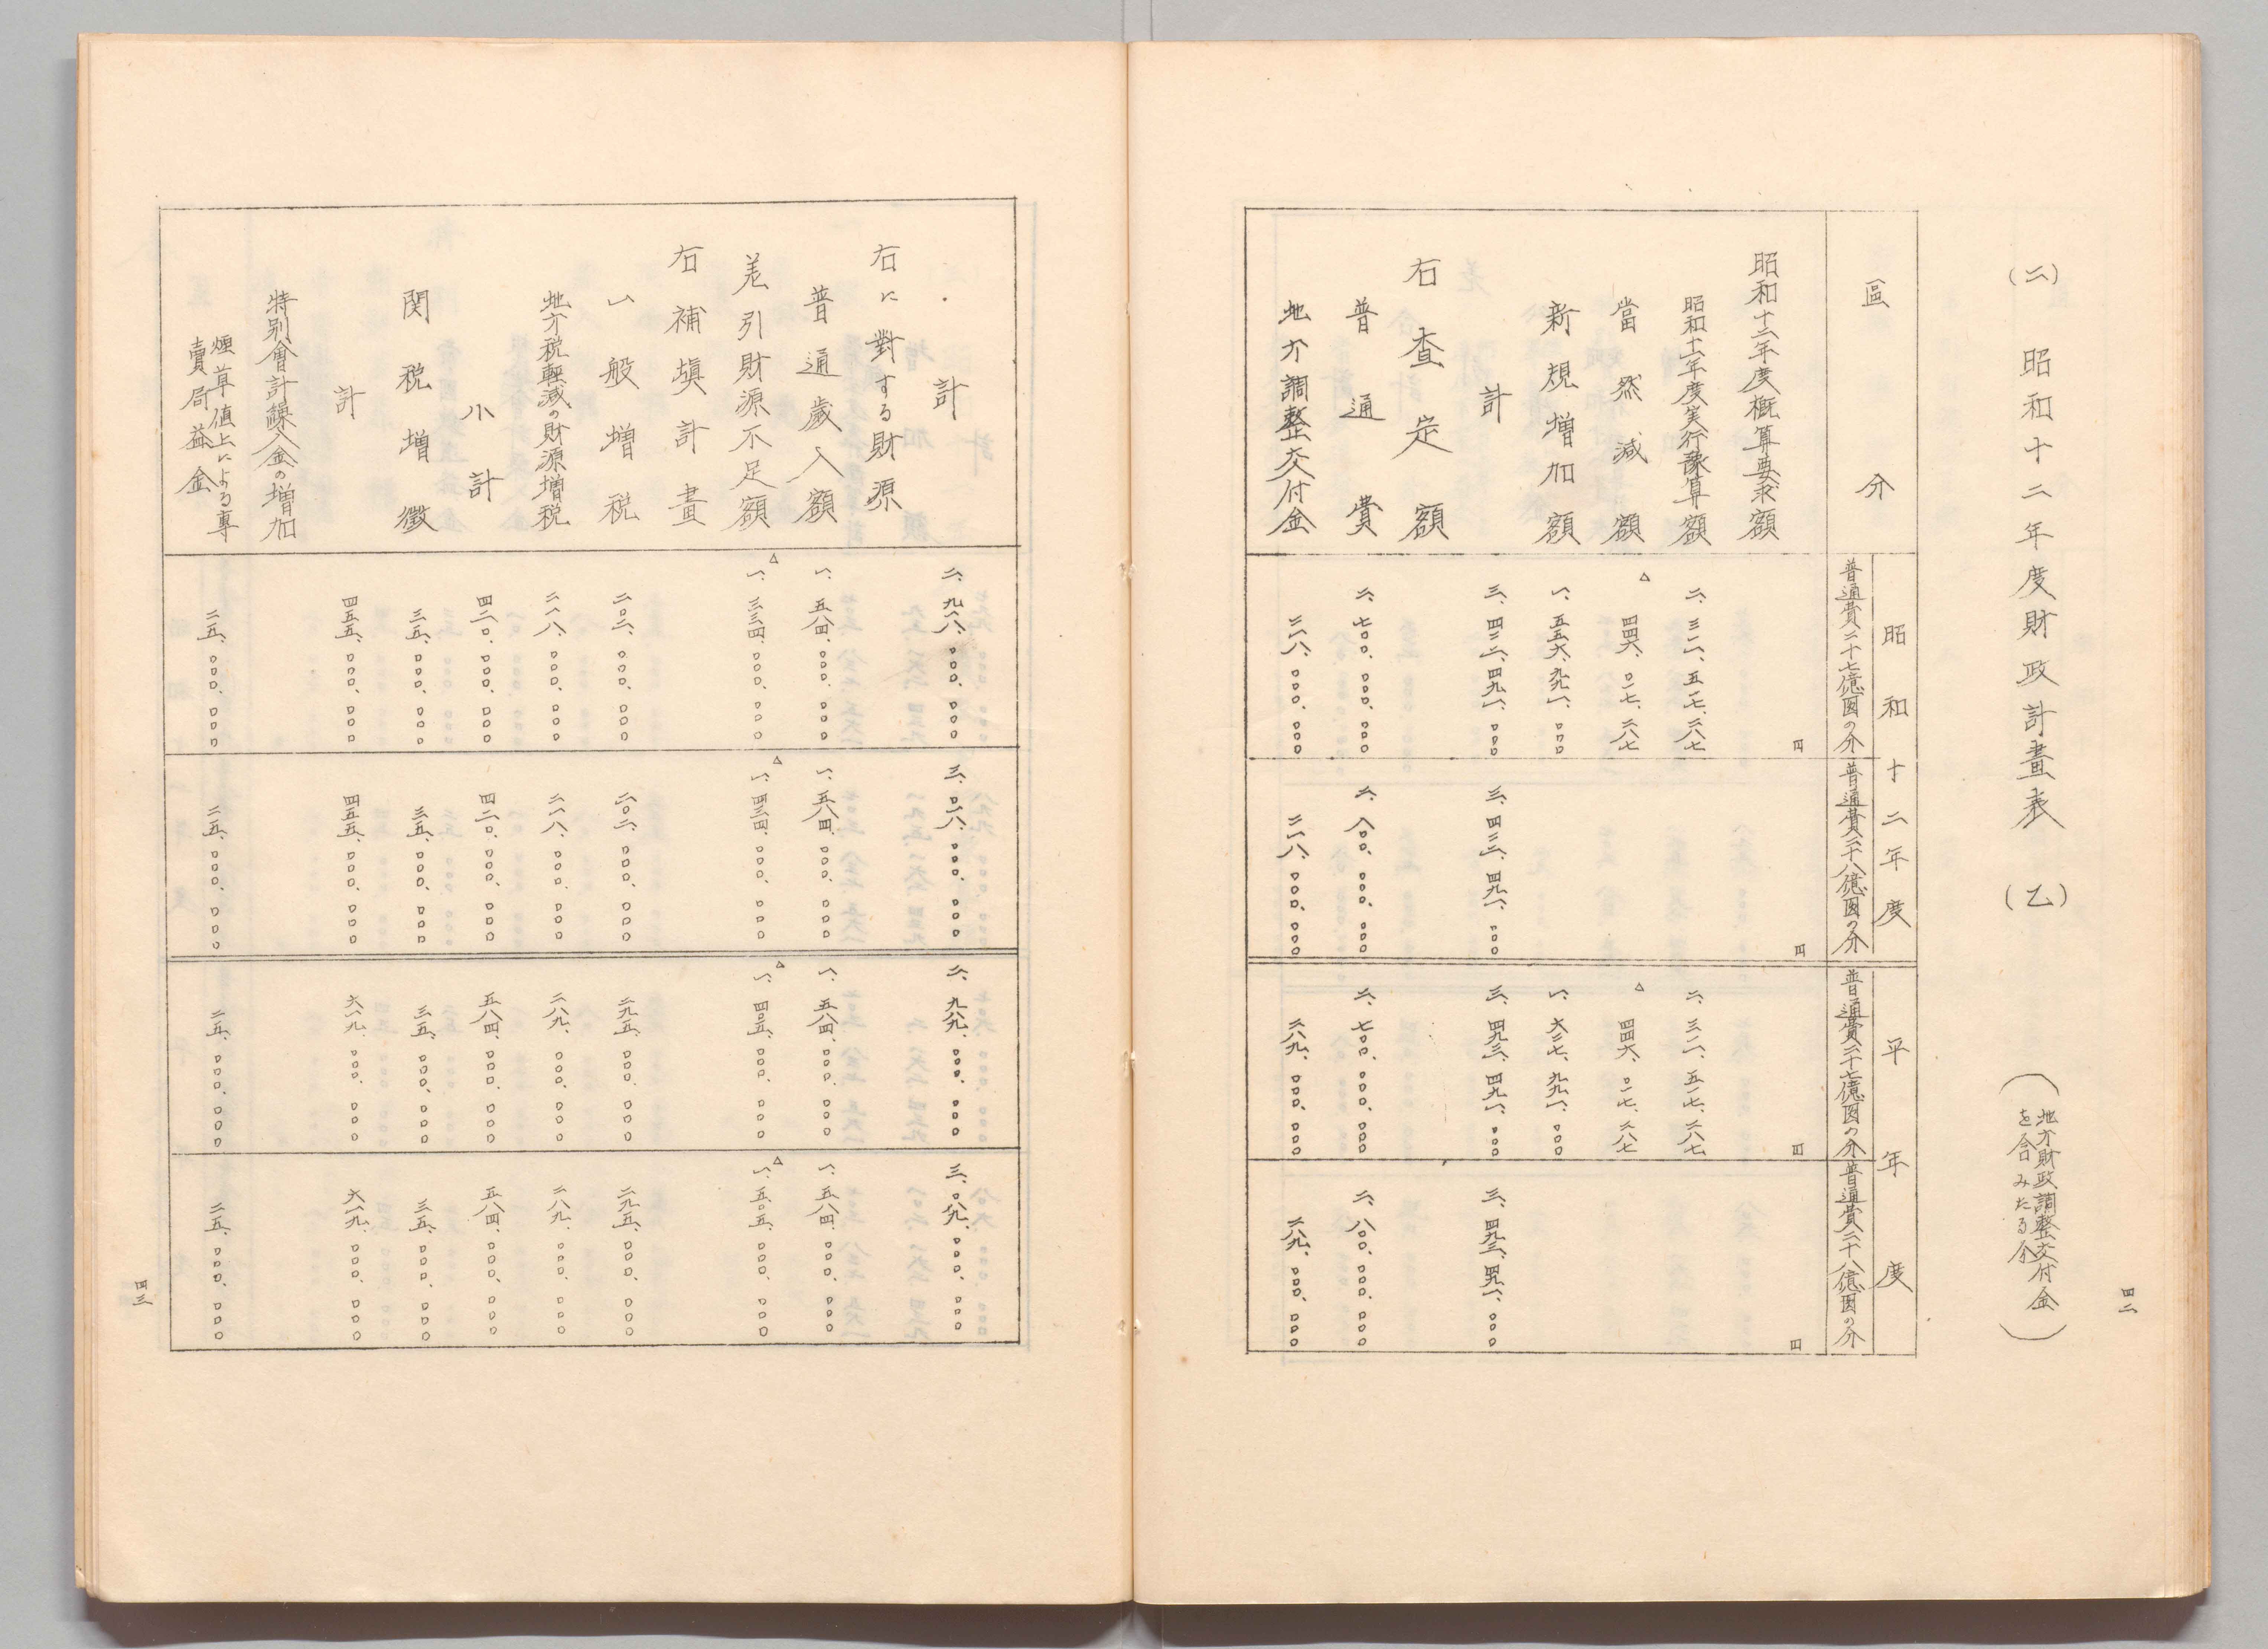 四二
(二) 昭和十二年度財政計畫表 (乙) (地方財政調整交付金を含みたる分)
區分 昭和十二年度 平年度
普通費二十七億圓の分 普通費二十八億圓の分 普通費二十七億圓の分 普通費二十八億圓の分
円 円 円 円
昭和十二年度概算要求額
昭和十一年度実行豫算額 二、三一一、五一七、二八七 二、三一一、五一七、二八七
當然減額 △四四六、〇一七、二八七 △四四六、〇一七、二八七
新規増加額 一、五五六、九九一、〇〇〇 一、六二七、九九一、〇〇〇
計 三、四二二、四九一、〇〇〇 三、四二二、四九一、〇〇〇 三、四九三、四九一、〇〇〇 三、四九三、四九一、〇〇〇
右査定額
普通費 二、七〇〇、〇〇〇、〇〇〇 二、八〇〇、〇〇〇、〇〇〇 二、七〇〇、〇〇〇、〇〇〇 二、八〇〇、〇〇〇、〇〇〇
地方調整交付金 二一八、〇〇〇、〇〇〇 二一八、〇〇〇、〇〇〇 二八九、〇〇〇、〇〇〇 二八九、〇〇〇、〇〇〇
計 二、九一八、〇〇〇、〇〇〇 三、〇一八、〇〇〇、〇〇〇 二、九八九、〇〇〇、〇〇〇 三、〇八九、〇〇〇、〇〇〇
右に對する財源
普通歳入額 一、五八四、〇〇〇、〇〇〇 一、五八四、〇〇〇、〇〇〇 一、五八四、〇〇〇、〇〇〇 一、五八四、〇〇〇、〇〇〇
差引財源不足額 △一、三三四、〇〇〇、〇〇〇 △一、四三四、〇〇〇、〇〇〇 △一、四〇五、〇〇〇、〇〇〇 △一、五〇五、〇〇〇、〇〇〇
右補塡計畫
一般増税 二〇二、〇〇〇、〇〇〇 二〇二、〇〇〇、〇〇〇 二九五、〇〇〇、〇〇〇 二九五、〇〇〇、〇〇〇
地方税軽減の財源増税 二一八、〇〇〇、〇〇〇 二一八、〇〇〇、〇〇〇 二八九、〇〇〇、〇〇〇 二八九、〇〇〇、〇〇〇
小計 四二〇、〇〇〇、〇〇〇 四二〇、〇〇〇、〇〇〇 五八四、〇〇〇、〇〇〇 五八四、〇〇〇、〇〇〇
関税増徴 三五、〇〇〇、〇〇〇 三五、〇〇〇、〇〇〇 三五、〇〇〇、〇〇〇 三五、〇〇〇、〇〇〇
計 四五五、〇〇〇、〇〇〇 四五五、〇〇〇、〇〇〇 六一九、〇〇〇、〇〇〇 六一九、〇〇〇、〇〇〇
特別會計繰入金の増加
煙草値上による專賣局益金 二五、〇〇〇、〇〇〇 二五、〇〇〇、〇〇〇 二五、〇〇〇、〇〇〇 二五、〇〇〇、〇〇〇
四三